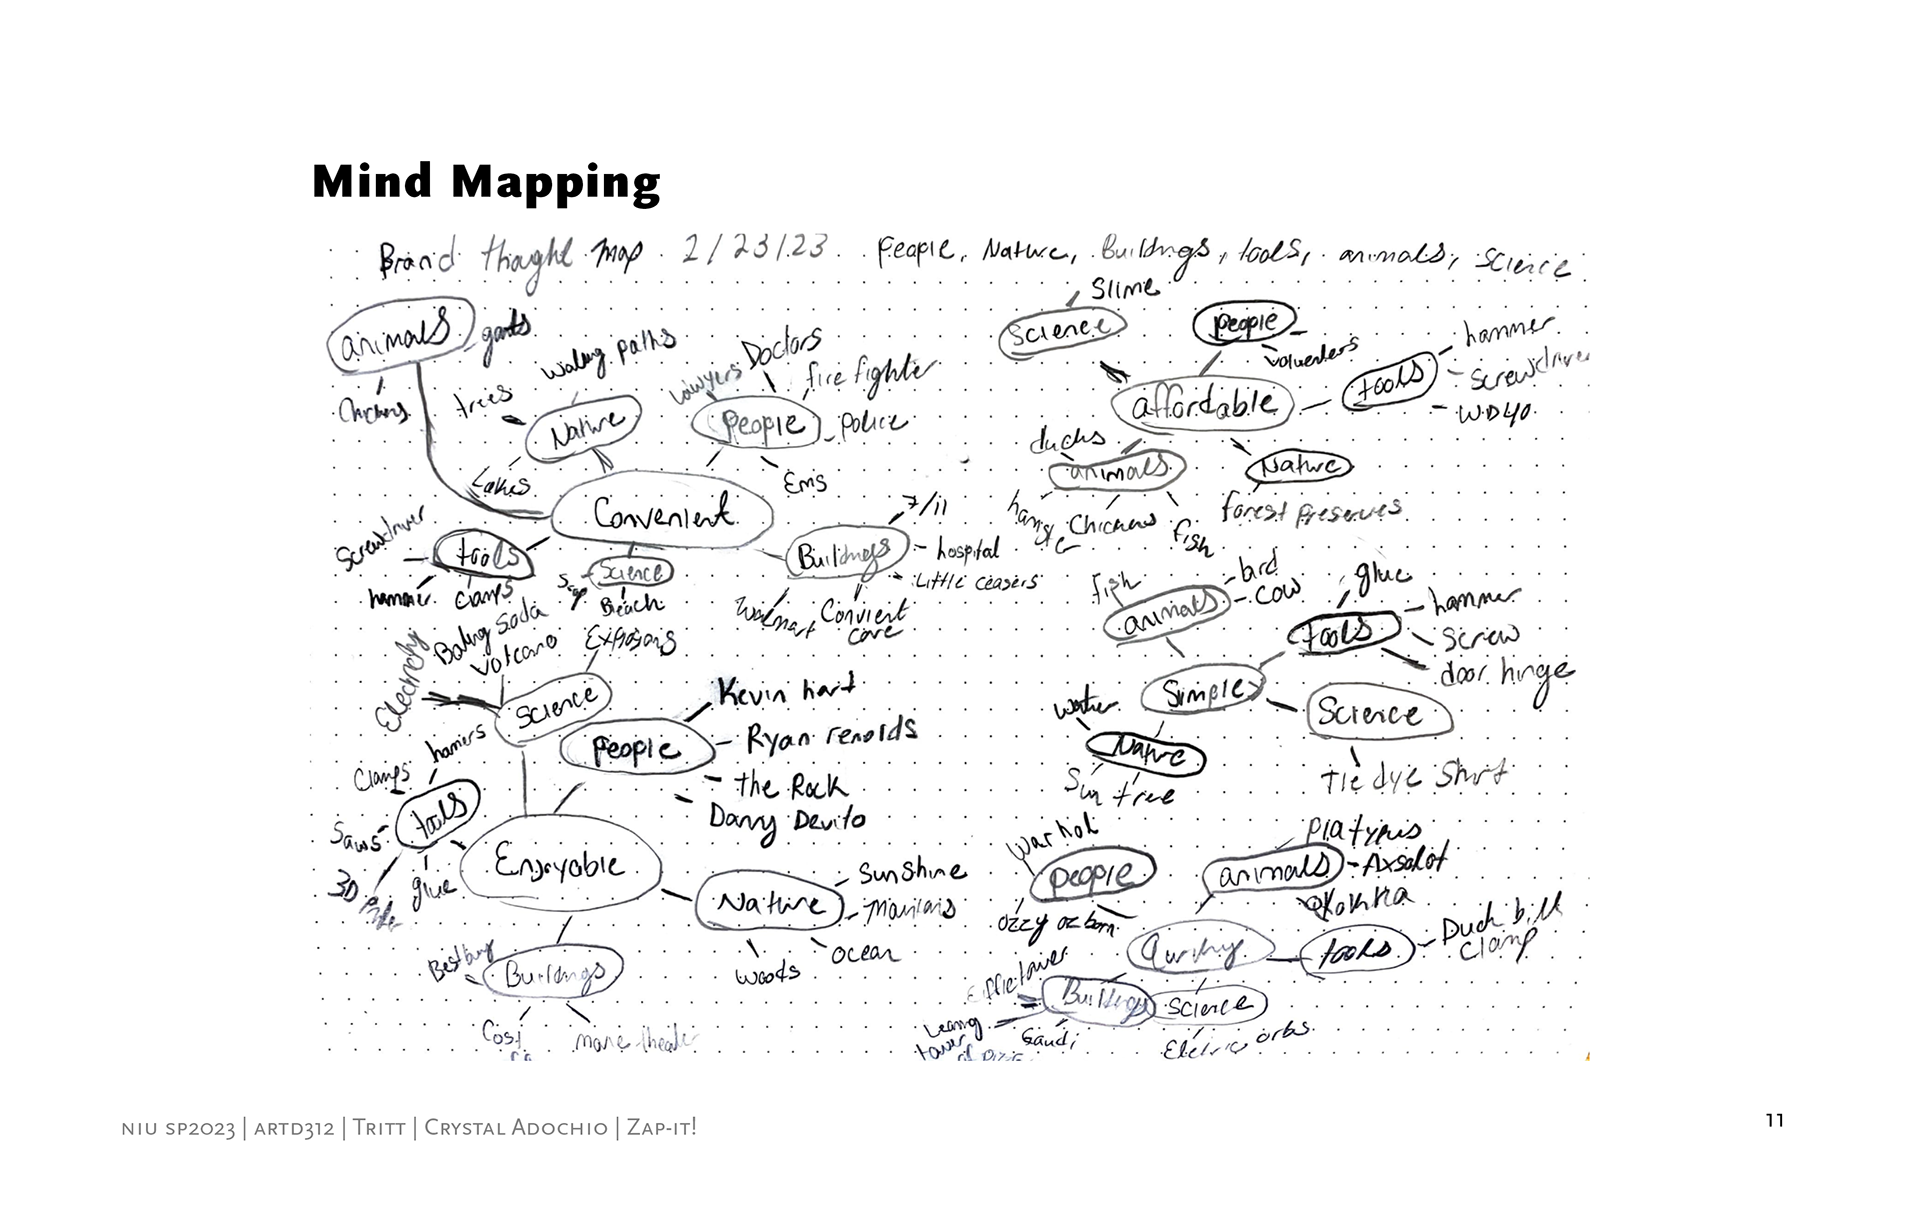 Mind Mapping
Brand thought map 2/23/23 People, Nature, Buildings, tools, animals, science
animals
Chickens
Nature
trees
paths
Lakes
People
Lawyers
Doctors
fire fighter
Police
Ems
Convenient
tools
Screwdriver
hammer
clamps
Science
Bleach
Buildings
7/11
hospital
Little ceasers
Walmart
Convient
care
Science
Slime
people
affordable
tools
hammer
Screwdriver
WD40
animals
ducks
Chickens
fish
Nature
forest preserves
animals
fish
bird
cow
tools
glue
hammer
screw
door hinge
Simple
Science
Tie dye Shirt
Nature
Sun tree
Science
Electricity
Baking Soda
Volcano
People
Kevin hart
Ryan renolds
the Rock
Danny Devito
tools
Clamps
hamers
Saws
3D
glue
Enjoyable
Nature
Sunshine
ocean
woods
Buildings
Bestbuy
people
warhol
ozzy ozborn
animals
Platypus
Axsolot
tools
Duck bill
clamp
Buildings
Leaning
tower
Gaudi
Science
Electric orbs
NIU SP2023 | ARTD312 | Tritt | Crystal Adochio | Zap-it!
11